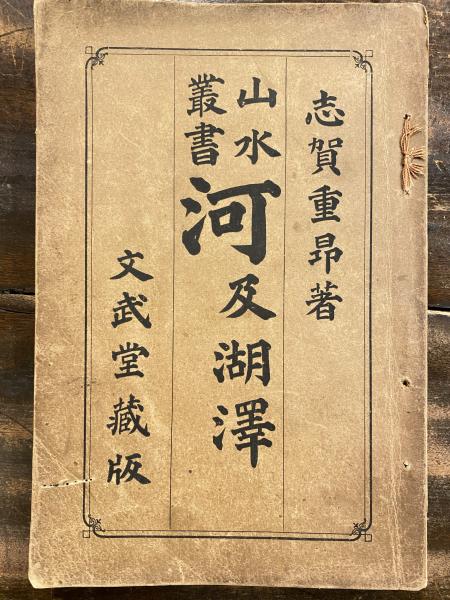 志賀重昂著
山水
叢書
河及湖澤
文武堂藏版